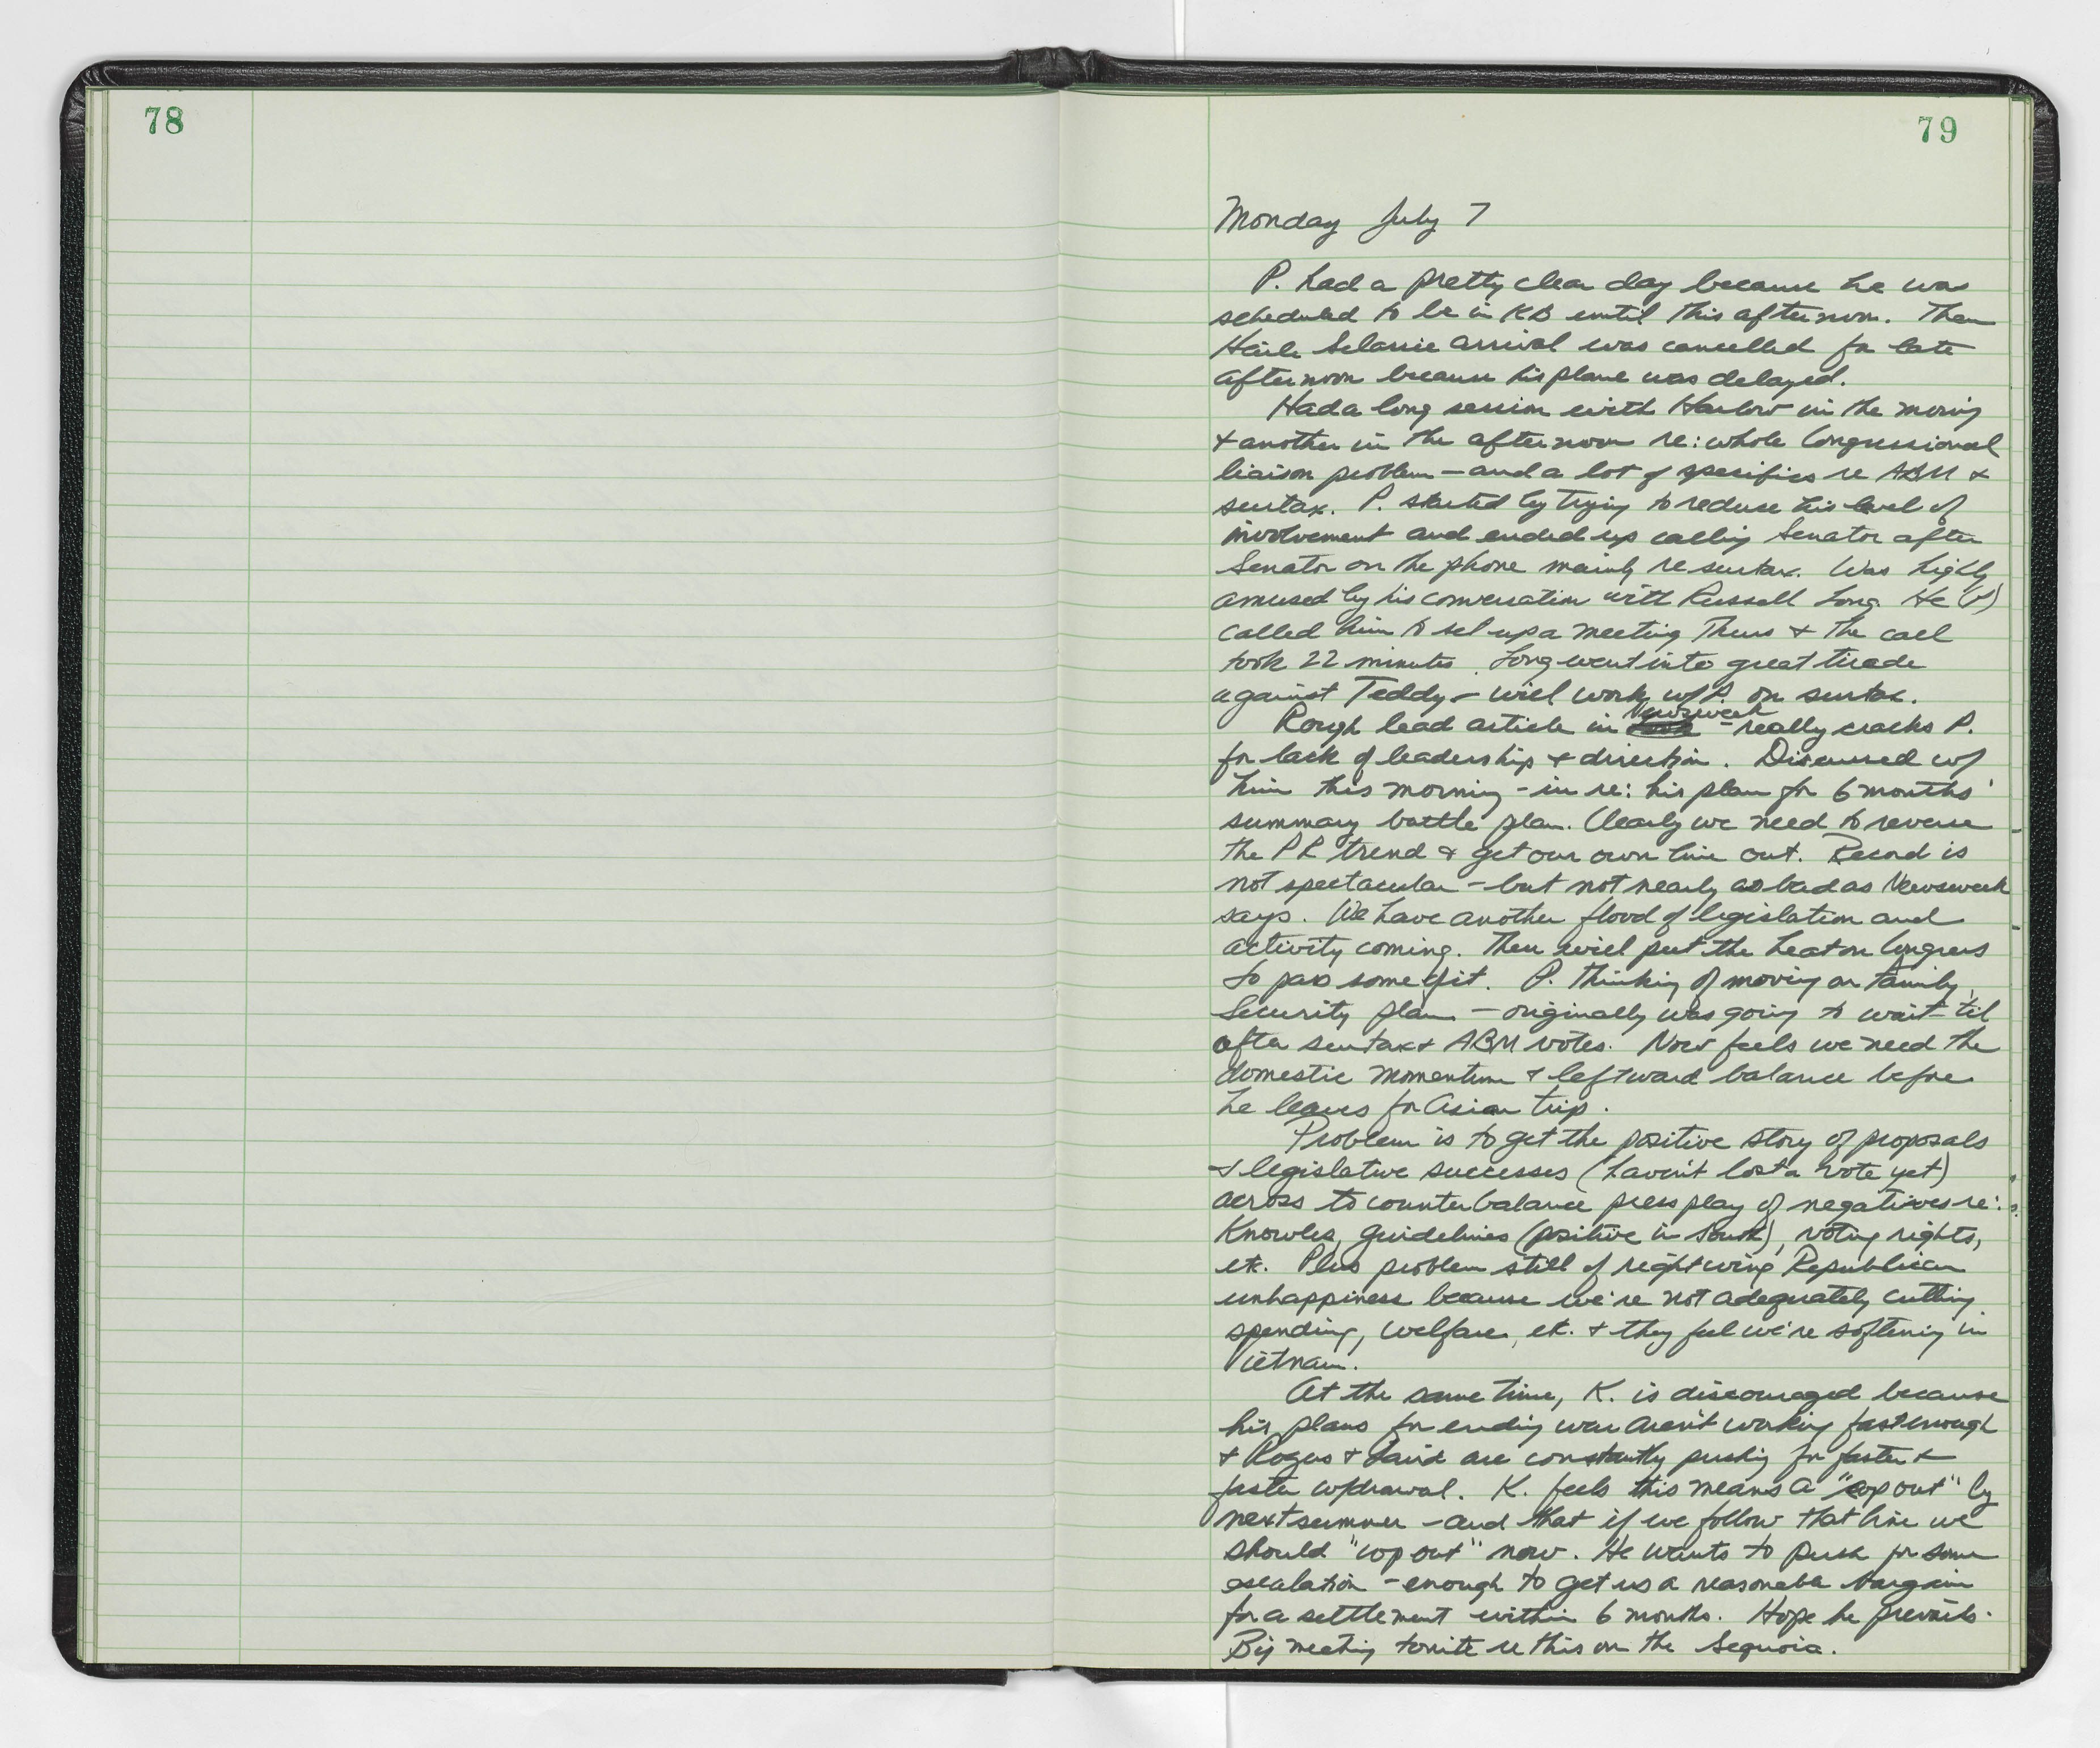 78
79
Monday July 7
P. had a pretty clear day because he was
scheduled to be in KB until this afternoon. Then
Haile Selassie arrival was cancelled for late
afternoon because his plane was delayed.
Had a long session with Harlow in the morning
& another in the afternoon re: whole Congressional
liaison problem - and a lot of specifics re ABM &
surtax. P. started by trying to reduce his level of
involvement and ended up calling Senator after
Senator on the phone mainly re surtax. Was highly
amused by his conversation with Russell Long. He (P)
called him to set up a meeting Thurs & the call
took 22 minutes. Long went into great tirade
against Teddy - will work w/P. on surtax.
Rough lead article in Newsweek - really cracks P.
for lack of leadership & direction. Discussed w/
him this morning - in re: his plan for 6 months'
summary battle plan. Clearly we need to reverse
the PR trend & get our own line out. Record is
not spectacular - but not nearly as bad as Newsweek
says. We have another flood of legislation and
activity coming. Then will put the heat on Congress
to pass some of it. P. thinking of moving on Family
Security plan - originally was going to wait til
after surtax & ABM votes. Now feels we need the
domestic momentum & leftward balance before
he leaves for Asian trip.
Problem is to get the positive story of proposals
& legislative successes (haven't lost a vote yet)
across to counterbalance press play of negatives re:
Knowles, guidelines (positive in South), voting rights,
etc. Plus problem still of right wing Republican
unhappiness because we're not adequately cutting
spending, welfare, etc. & they feel we're softening in
Vietnam.
At the same time, K. is discouraged because
his plans for ending war aren't working fast enough
& Rogers & Laird are constantly pushing for faster &
faster w/drawal. K. feels this means a "cop out" by
next summer - and that if we follow that line we
should "cop out" now. He wants to push for some
escalation - enough to get us a reasonable bargain
for a settlement within 6 months. Hope he prevails.
Big meeting tonite re this on the Sequoia.